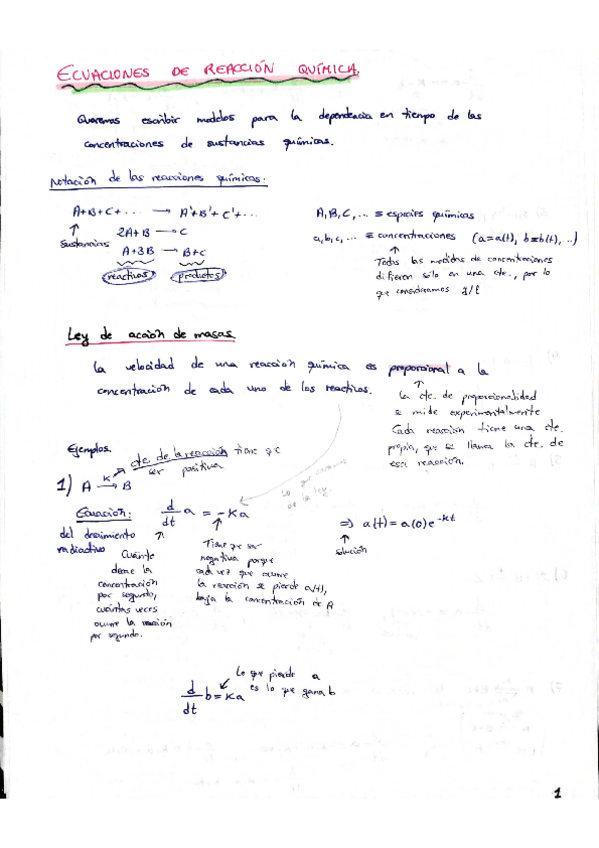 ECUACIONES DE REACCIÓN QUÍMICA.
Queremos escribir modelos para la dependencia en tiempo de las
concentraciones de sustancias químicas.
Notación de las reacciones químicas:
A+B+C+... → A'+B'+C'+...
↑
Sustancias
2A+B → C
A+3B → B+C
reactivos
productos
A, B, C, ... ≡ especies químicas
a, b, c, ... ≡ concentraciones (a=a(t), b=b(t), ...)
↑
Todas las medidas de concentraciones
difieren sólo en una cte., por lo
que consideramos g/l
Ley de acción de masas.
La velocidad de una reacción química es proporcional a la
concentración de cada uno de los reactivos.
↑
La cte. de proporcionalidad
se mide experimentalmente
Cada reacción tiene una cte.
propia, que se llama la cte. de
esa reacción.
Ejemplos.
cte. de la reacción tiene que
ser positiva
1) A →K B
Lo que
de la ley.
Ecuación:
del
radiactivo
d/dt a = -Ka
⇒ a(t) = a(0)e^-kt
↑
solución
↑
Cuánto
la
concentración
por segundo,
cuántas veces
ocurre la reacción
por segundo.
↑
Tiene que ser
negativa porque
cada vez que ocurre
la reacción se pierde a(t),
baja la concentración de A
d/dt b = Ka
Lo que pierde a
es lo que gana b
1